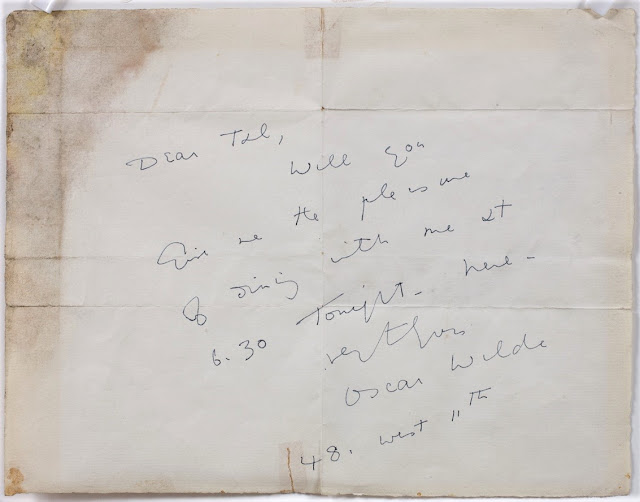 Dear Tal,
Will you
Give me the pleasure
of dining with me at
6.30 Tonight - here -
very truly yours
Oscar Wilde
48. West 11th